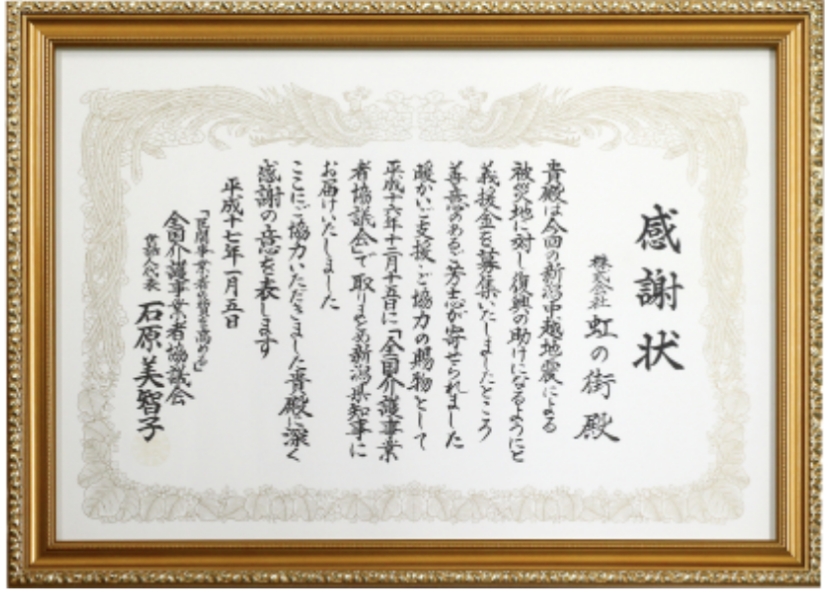 感謝状
株式会社 虹の街 殿
貴殿は今回の新潟中越地震による
被災地に対し復興の助けになるようにと
義援金を募集いたしましたところ
善意のあるご芳志が寄せられました
暖かいご支援・ご協力の賜物として
平成十六年十二月十五日に「全国介護事業
者協議会」で取りまとめ新潟県知事に
お届けいたしました
ここにご協力いただきました貴殿に深く
感謝の意を表します
平成十七年一月五日
「民間事業者の質を高める」
全国介護事業者協議会
石原美智子